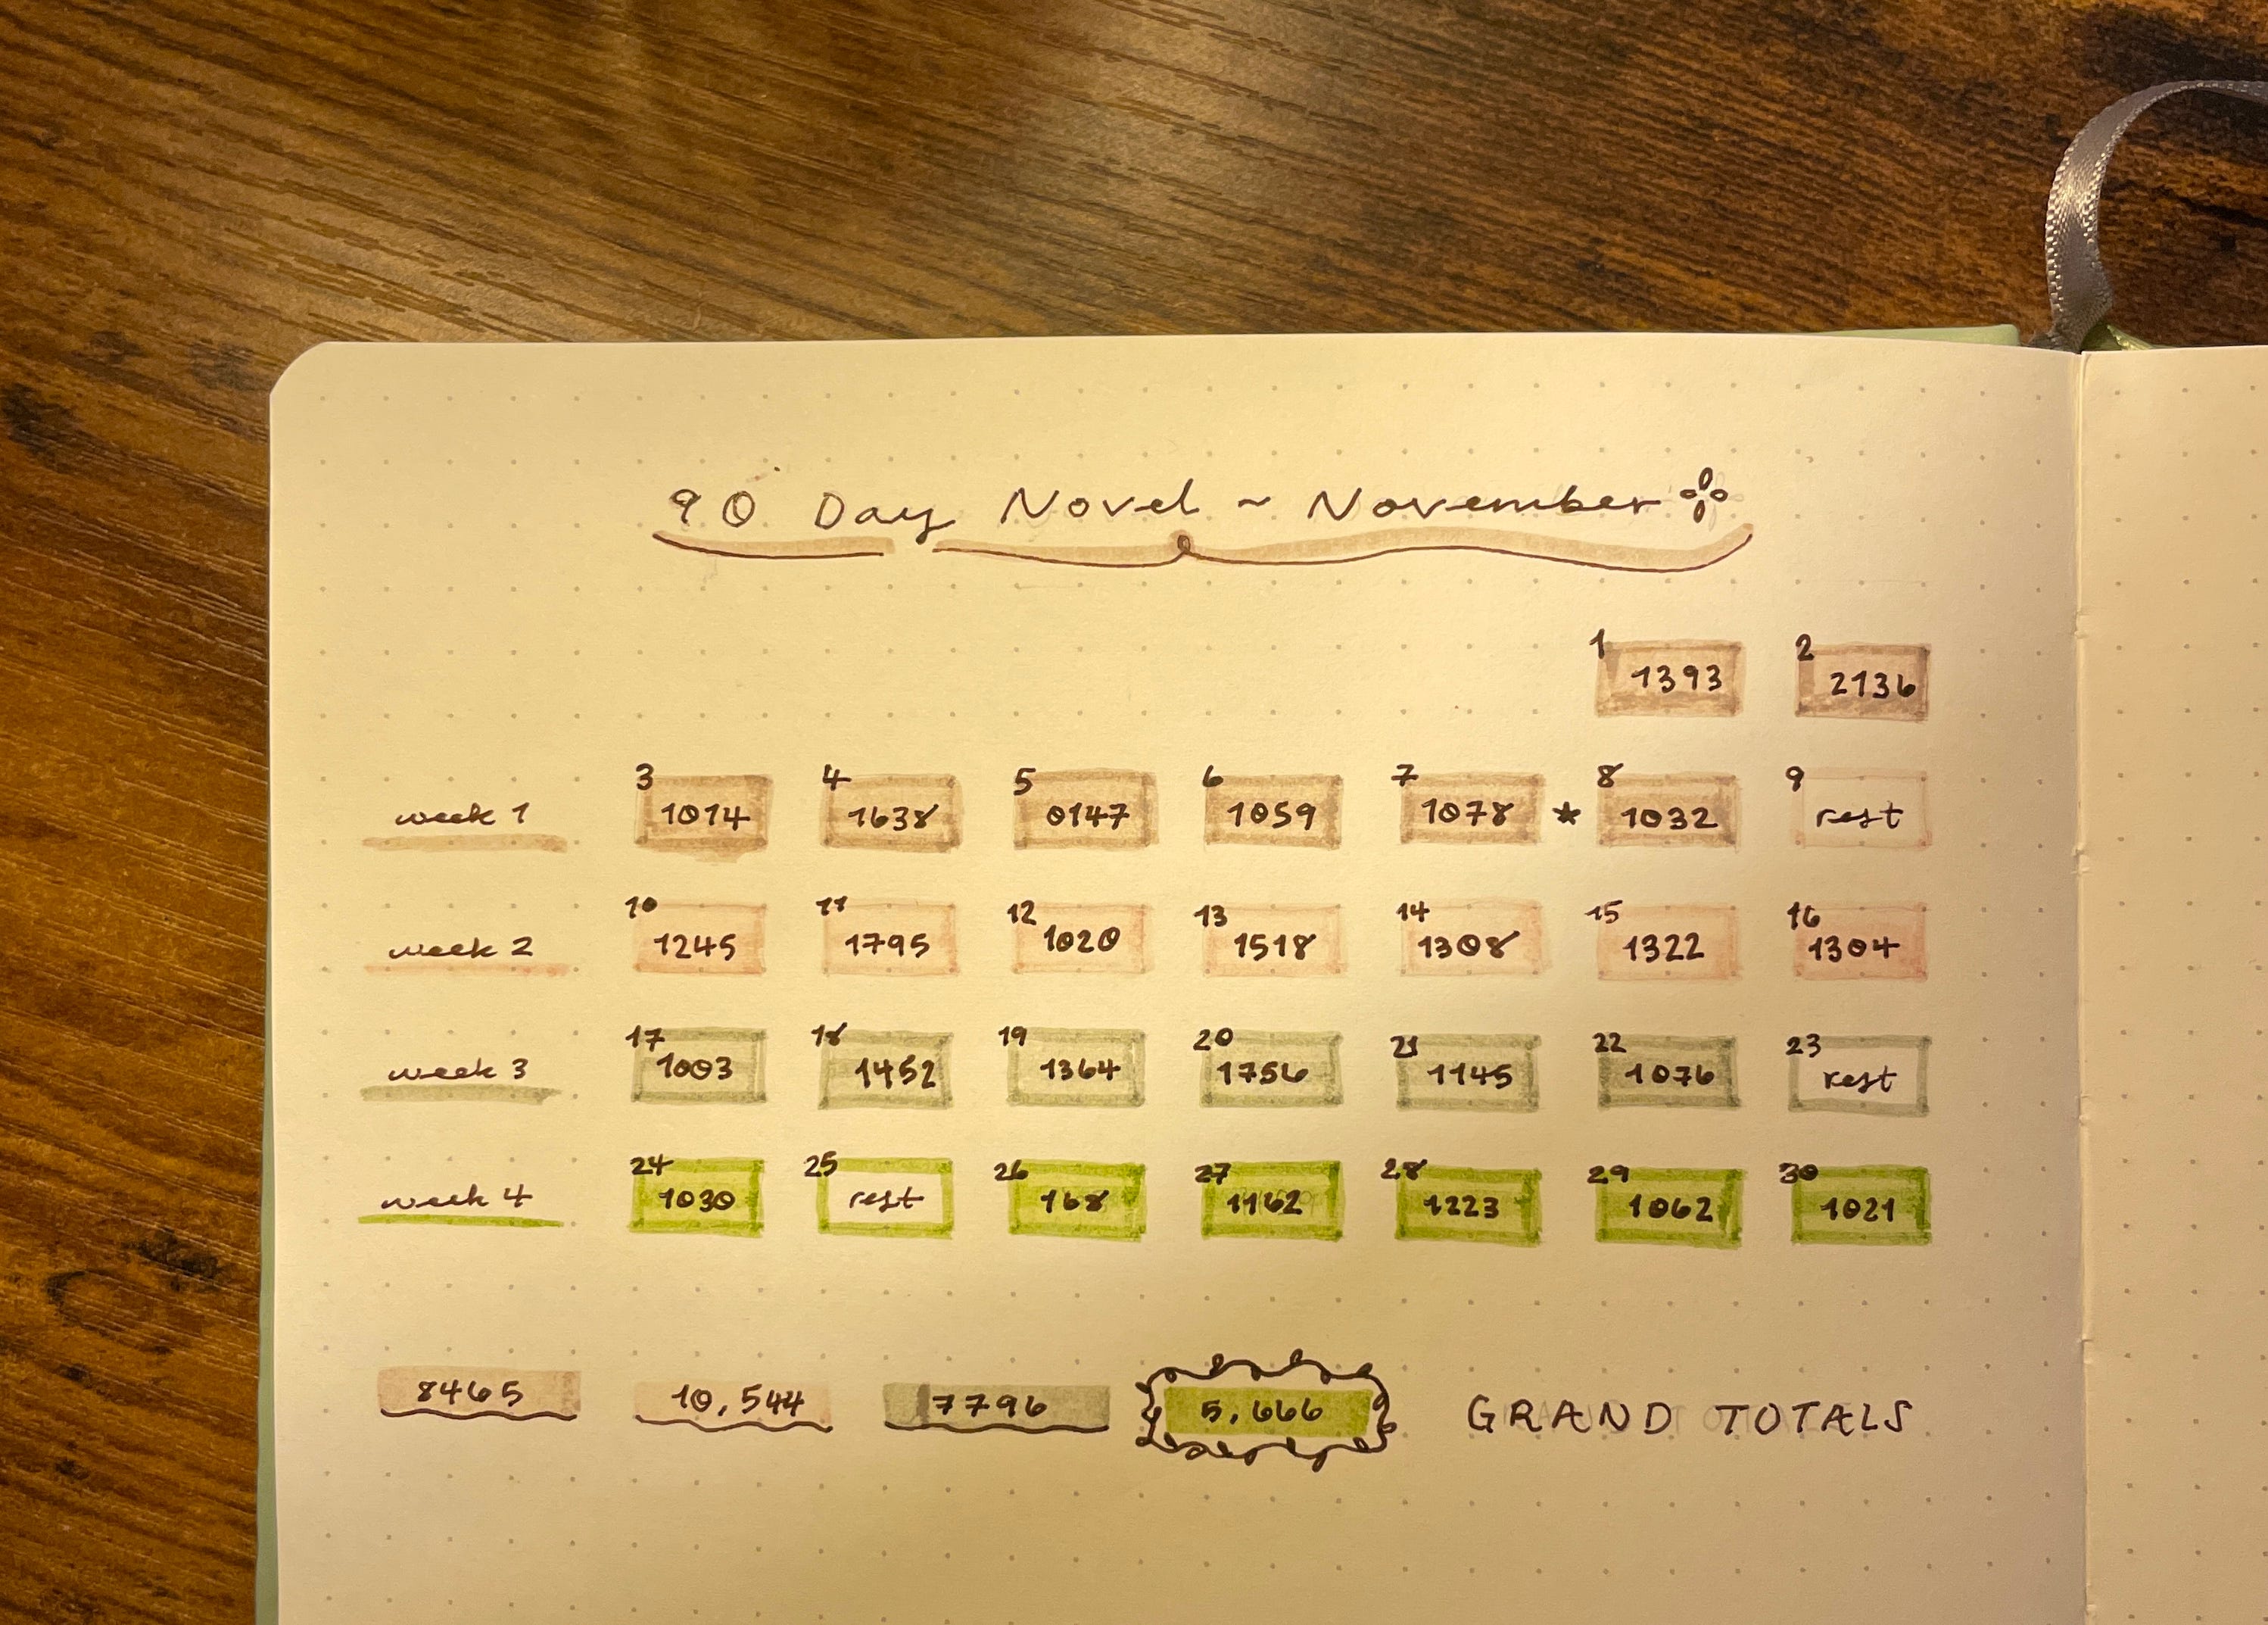 90 Day Novel ~ November
1 1393 2 2136
week 1 3 1014 4 1638 5 0147 6 1059 7 1078 * 8 1032 9 rest
week 2 10 1245 11 1795 12 1020 13 1518 14 1308 15 1322 16 1304
week 3 17 1003 18 1452 19 1364 20 1756 21 1145 22 1076 23 rest
week 4 24 1030 25 rest 26 168 27 1162 28 1223 29 1062 30 1021
8465 10,544 7796 5,666 GRAND TOTALS